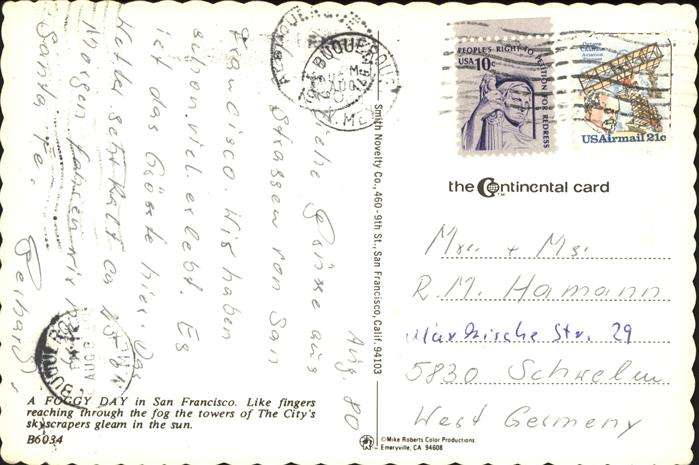 Aug. 80
Grüsse aus
Strassen von San
Francisco. Wir haben
schon viel erlebt. Es
ist das Grösste hier. Das
Hotel
Morgen fahren wir
Santa Fe.
ALBUQUERQUE
AUG
N. MEX
PEOPLE'S RIGHT TO PETITION FOR REDRESS
USA 10c
USAirmail 21c
the Continental card
Mrs. + Mr.
R.M. Hamann
Märkische Str. 29
5830 Schwelm
West Germany
Smith Novelty Co., 460-9th St., San Francisco, Calif. 94103
A FOGGY DAY in San Francisco. Like fingers
reaching through the fog the towers of The City's
skyscrapers gleam in the sun.
B6034
©Mike Roberts Color Productions
Emeryville, CA 94608